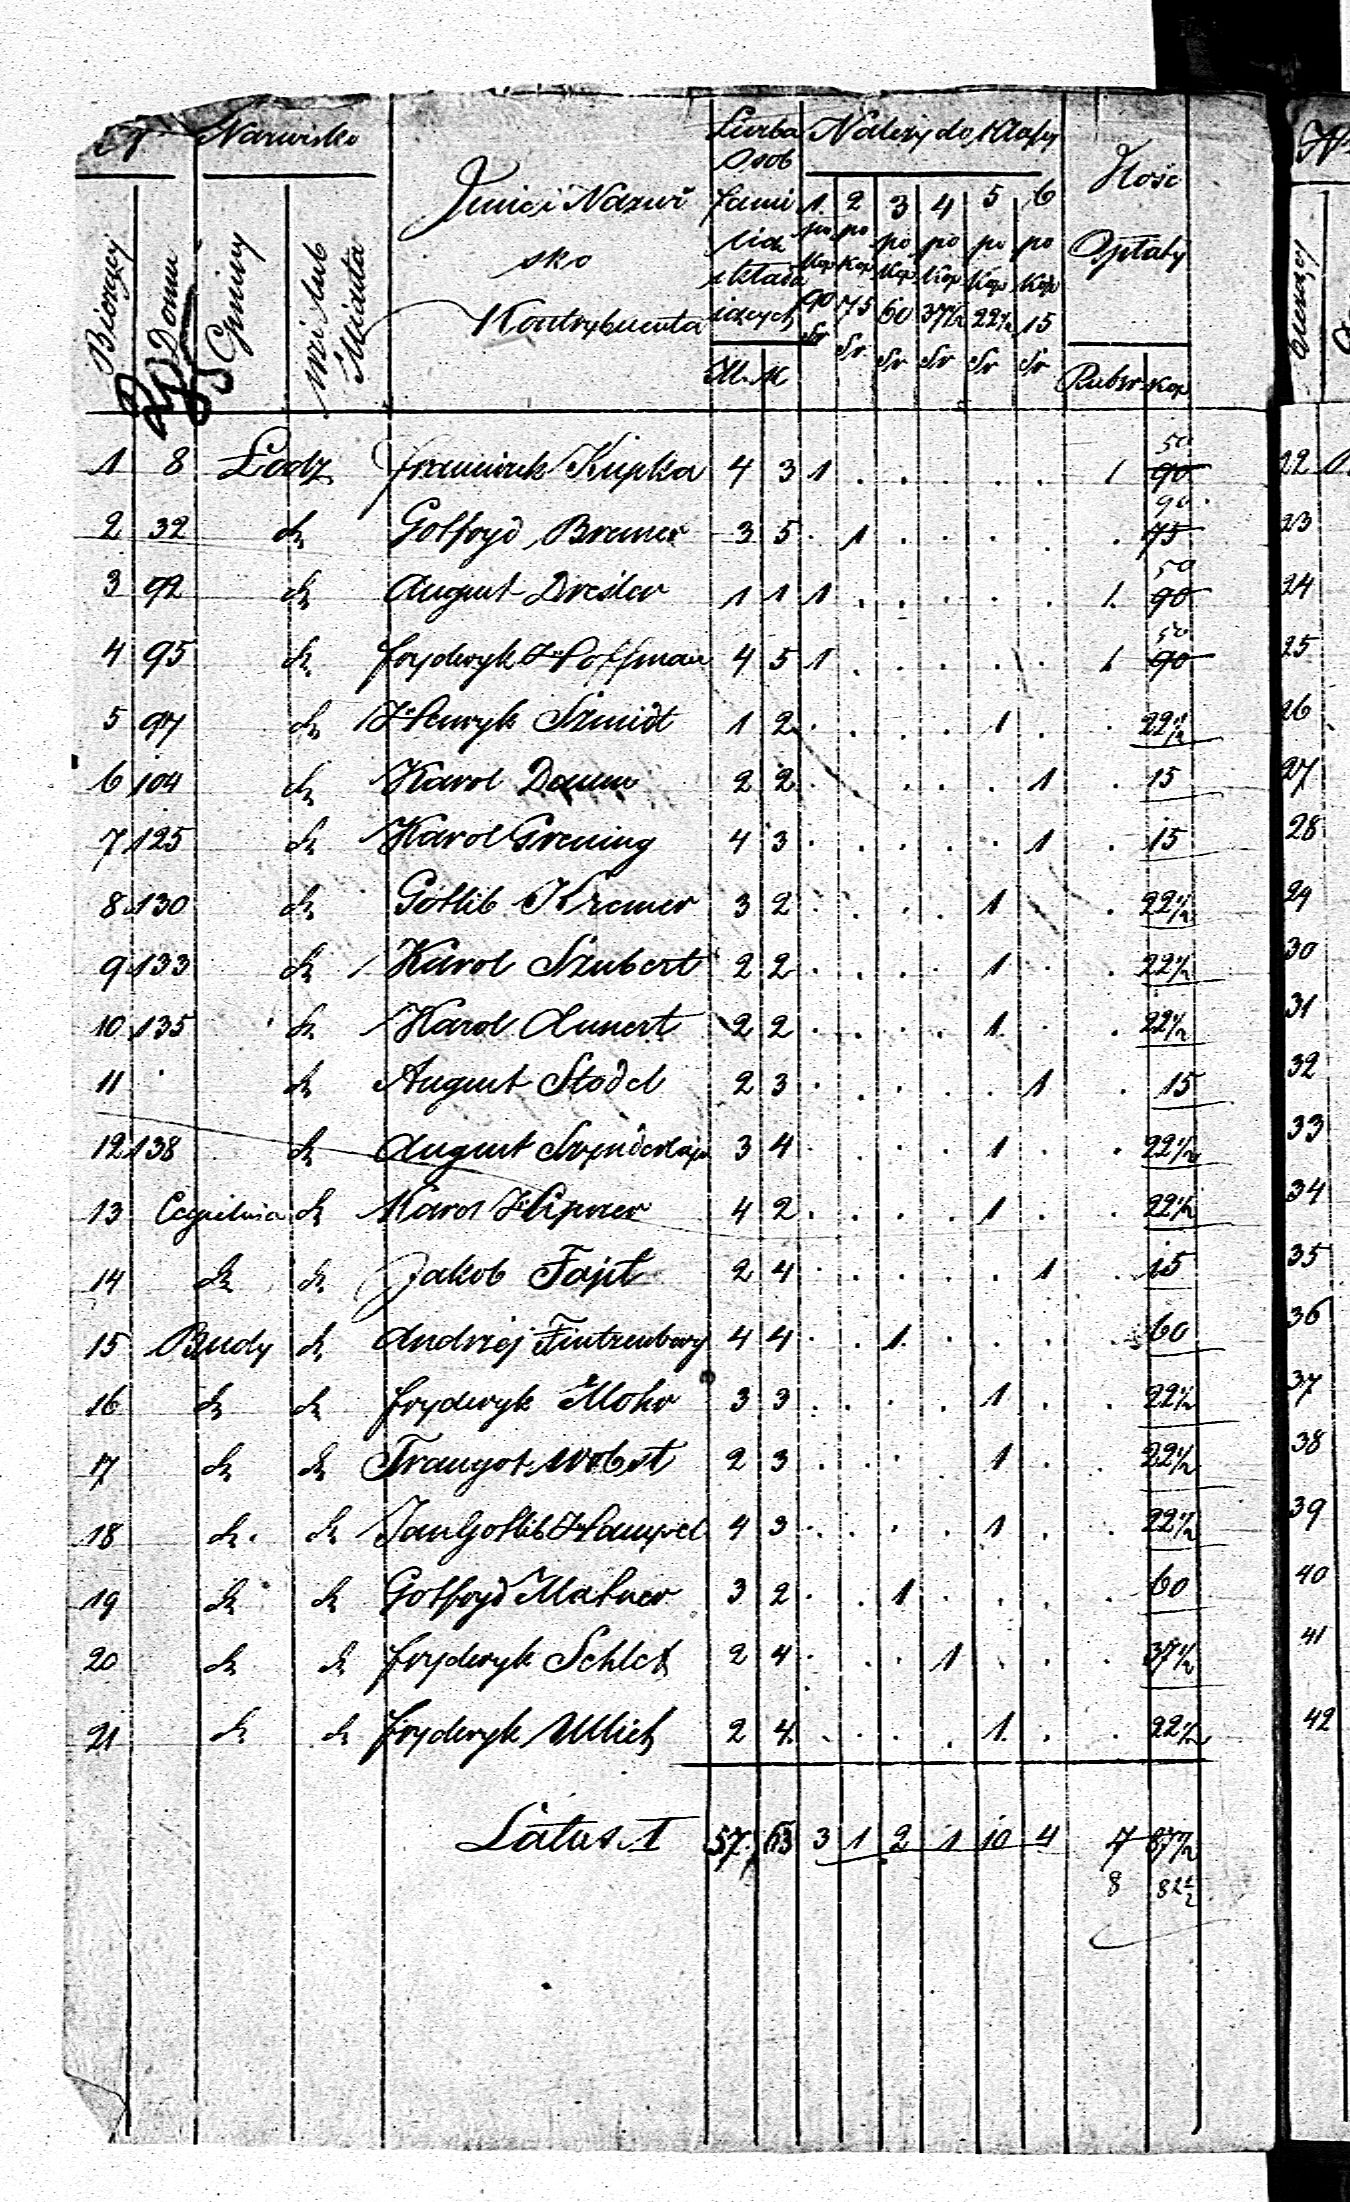 N Nazwisko Liczba Należy do Klassy
Osob
Imie i Nazwi Fami 1. 2 3 4 5 6 Ilość
Bierzący Domu Gminy wsi lub Miasta
sko po po po po po po Opłaty
Kop Kop Kop Kop Kop Kop
Kontrybuenta 90 75 60 37½ 22½ 15
Sr Sr Sr Sr Sr Sr
M. K Rubsr Kop
50
1 8 Lodz Franciszek Kupka 4 3 1 . . . . . 1 90
90
2 32 dt Gotfryd Bremer 3 5 . 1 . . . . . 75
50
3 92 dt August Dresler 1 1 1 . . . . . 1. 90
50
4 95 dt Fryderyk Hoffman 4 5 1 . . . . . 1 90
5 97 dt Henryk Szmidt 1 2 . . . . 1 . . 22½
6 104 dt Karol Damm 2 2 . . . . 1 . 15
7 125 dt Karol Grening 4 3 . . . . . 1 . 15
8 130 dt Gotlib Kremer 3 2 . . . . 1 . 22½
9 133 dt Karol Szubert 2 2 . . . . 1 . . 22½
10 135 dt Karol Kunert 2 2 . . . . 1. . . 22½
11 . dt August Stodel 2 3 . . . . . 1 . 15
12 138 dt August 3 4 . . . . 1 . . 22½
13 Cegielnia dt Karol 4 2 . . . . 1 . . 22½
14 dt dt Jakob Fajt 2 4 . . . . . 1 . 15
15 Budy dt Andrzej 4 4 . . 1. . . . 60
16 dt dt Fryderyk Mohr 3 3 . . . . 1 . . 22½
17 dt dt Traugot Wobst 2 3 . . . . 1 . . 22½
18 dt. dt Jan Gotlib Hampel 4 3 . . . . 1 . 22½
19 dt dt Gotfryd Matner 3 2 . . 1 . . . . 60
20 dt dt Fryderyk Schlet 2 4 . . . 1 . . . 37½
21 dt dt Fryderyk Ullich 2 4. . . . . 1. . . 22½
Latus I 57. 63 3 1 2 1 10 4 7 87½
8 82½
22
23
24
25
26
27
28
29
30
31
32
33
34
35
36
37
38
39
40
41
42